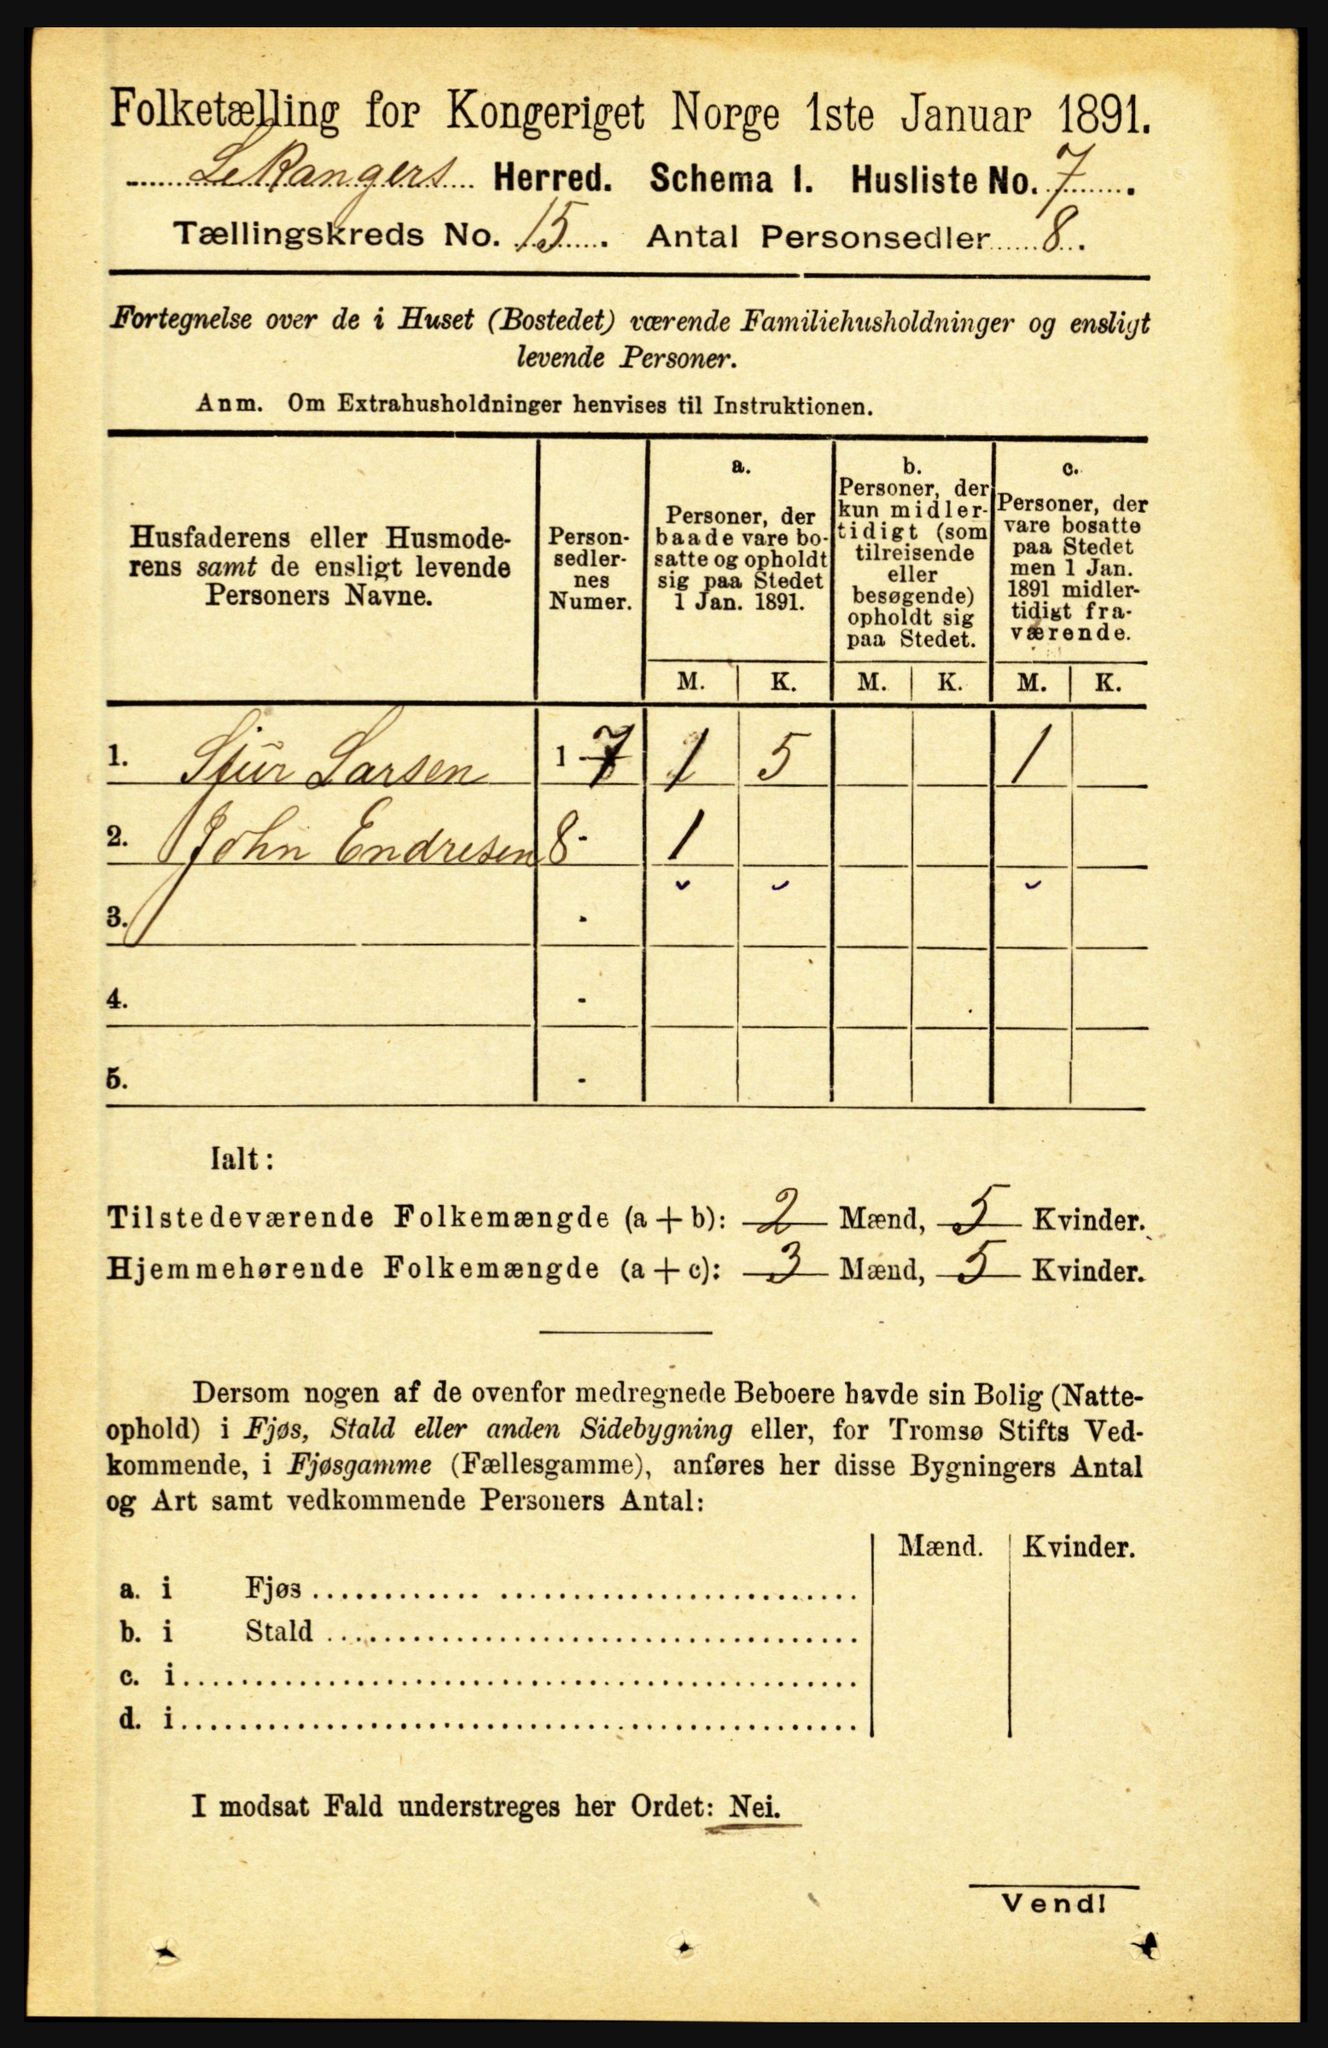 Folketælling for Kongeriget Norge 1ste Januar 1891.
Lekangers Herred. Schema I. Husliste No. 7.
Tællingskreds No. 15. Antal Personsedler 8.
Fortegnelse over de i Huset (Bostedet) værende Familiehusholdninger og ensligt
levende Personer.
Anm. Om Extrahusholdninger henvises til Instruktionen.
Husfaderens eller Husmode-
rens samt de ensligt levende
Personers Navne.
Person-
sedler-
nes
Numer.
a.
Personer, der
baade vare bo-
satte og opholdt
sig paa Stedet
1 Jan. 1891.
b.
Personer, der
kun midler-
tidigt (som
tilreisende
eller
besøgende)
opholdt sig
paa Stedet.
c.
Personer, der
vare bosatte
paa Stedet
men 1 Jan.
1891 midler-
tidigt fra-
værende.
M. K. M. K. M. K.
1. Sjur Larsen 1-7 1 5 1
2. John Endresen 8- 1
3. -
4. -
5. -
Ialt:
Tilstedeværende Folkemængde (a + b): 2 Mænd, 5 Kvinder.
Hjemmehørende Folkemængde (a + c): 3 Mænd, 5 Kvinder.
Dersom nogen af de ovenfor medregnede Beboere havde sin Bolig (Natte-
ophold) i Fjøs, Stald eller anden Sidebygning eller, for Tromsø Stifts Ved-
kommende, i Fjøsgamme (Fællesgamme), anføres her disse Bygningers Antal
og Art samt vedkommende Personers Antal:
Mænd. Kvinder.
a. i Fjøs
b. i Stald
c. i
d. i
I modsat Fald understreges her Ordet: Nei.
Vend!